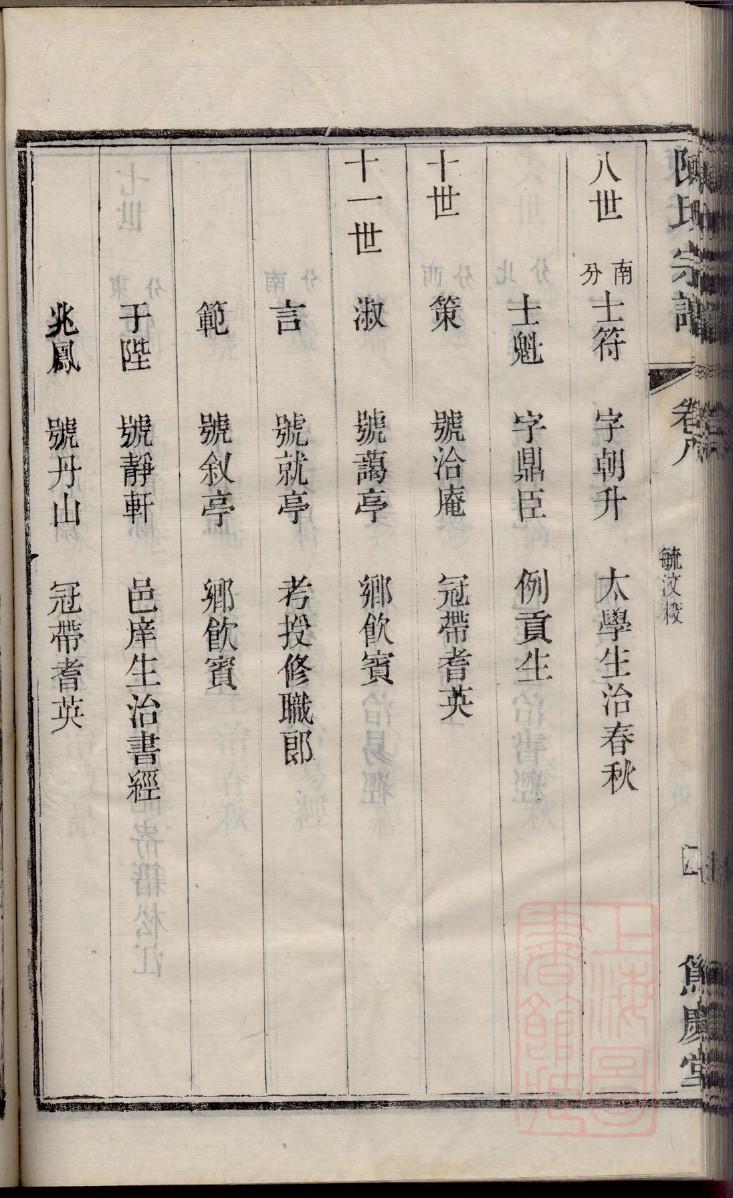 陳氏宗譜 卷八 毓汶校 四
八世 南分 士符 字朝升 太學生治春秋
士魁 字鼎臣 例貢生
十世 策 號洽庵 冠帶耆英
十一世 淑 號藹亭 鄉飲賓
言 號就亭 考授修職郎
範 號叙亭 鄉飲賓
于陛 號靜軒 邑庠生治書經
兆鳳 號丹山 冠帶耆英
上海圖書館藏